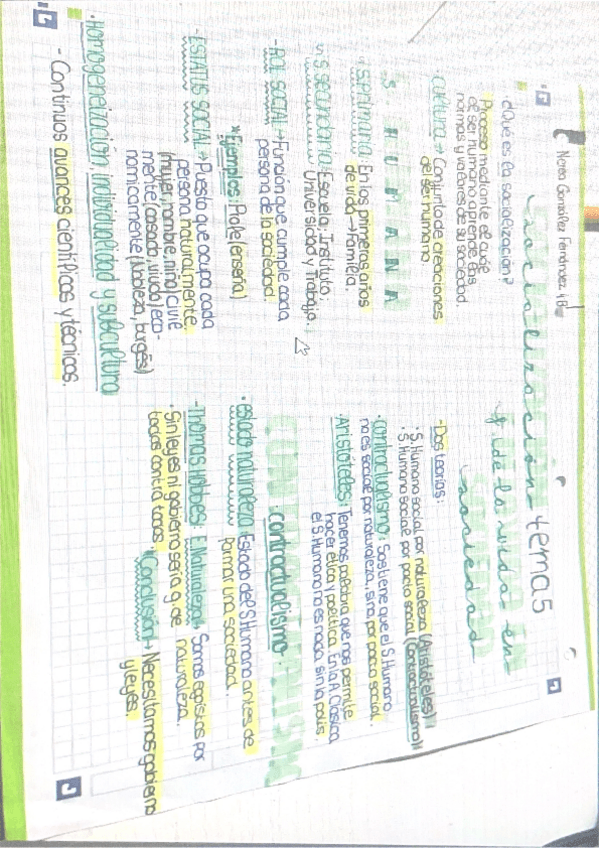 Nerea González Fernández 4B
tema 5
Socialización
y de la vida en
sociedad
¿Qué es la socialización?
Proceso mediante el cual e
de ser humano aprende las
normas y valores de su sociedad
· cultura → Conjunto de creaciones
del ser humano.
S. HUMANA
S. primaria: En los primeros años
de vida → Familia.
S. secundaria: Escuela, Instituto,
Universidad y Trabajo.
- ROL SOCIAL → Función que cumple cada
persona de la sociedad.
* Ejemplos: Profe (enseña)
- ESTATUS SOCIAL → Puesto que ocupa cada
persona naturalmente
(mujer, hombre, niño) civil
mente (casado, viudo) eco-
nomicamente (Nobleza, burgés)
· Homogeneización, individualidad y subcultura
- Continuos avances científicos y técnicos.
- Dos teorías:
· S. Humano social por naturaleza (Aristóteles)
· S. Humano social por pacto social (Contractualismo)
· contractualismo: Sostiene que el S. Humano
no es social por naturaleza, sino por pacto social.
· Aristóteles: Tenemos palabra que nos permite
hacer ética y política. En la A. Clásica,
el S. Humano no es nada sin la polis.
CONTRACTUALISMO
· contractualismo ·
· estado naturaleza: Estado del S. Humano antes de
formar una sociedad.
- Thomas Hobbes: E. Naturaleza → Somos egoístas por
naturaleza.
· Sin leyes ni gobierno sería g. de
todos contra todos. Conclusión → Necesitamos gobierno
y leyes.